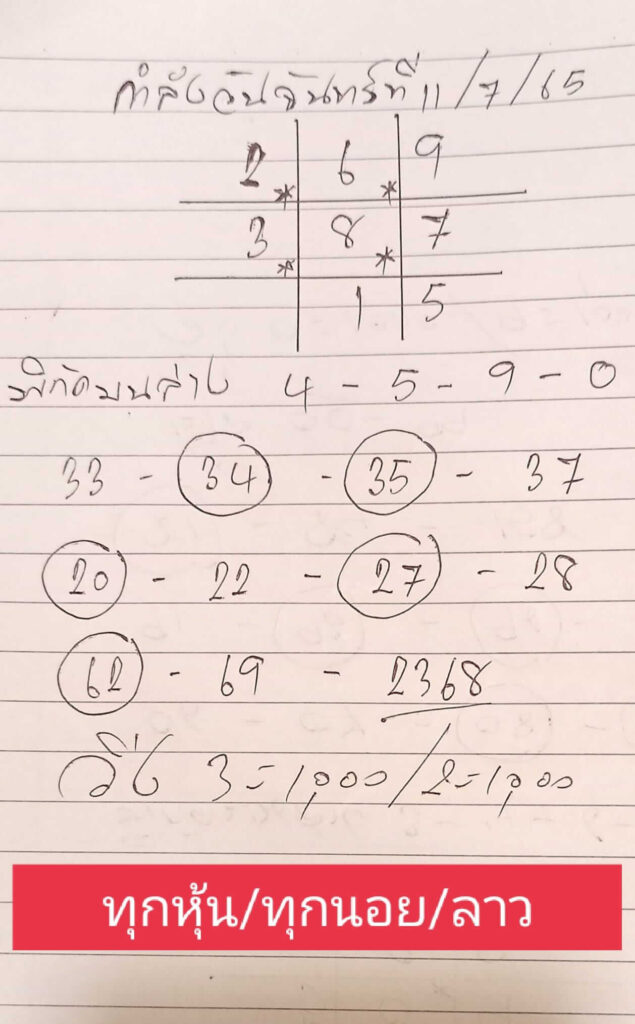 กำลังวันจันทร์ที่ 11/7/65
2 * 6 * 9
3 * 8 * 7
1 5
พิกัดบนล่าง 4 - 5 - 9 - 0
33 - 34 - 35 - 37
20 - 22 - 27 - 28
62 - 69 - 2368
วิ่ง 3 = 1,000 / 2 = 1,000
ทุกหุ้น/ทุกนอย/ลาว